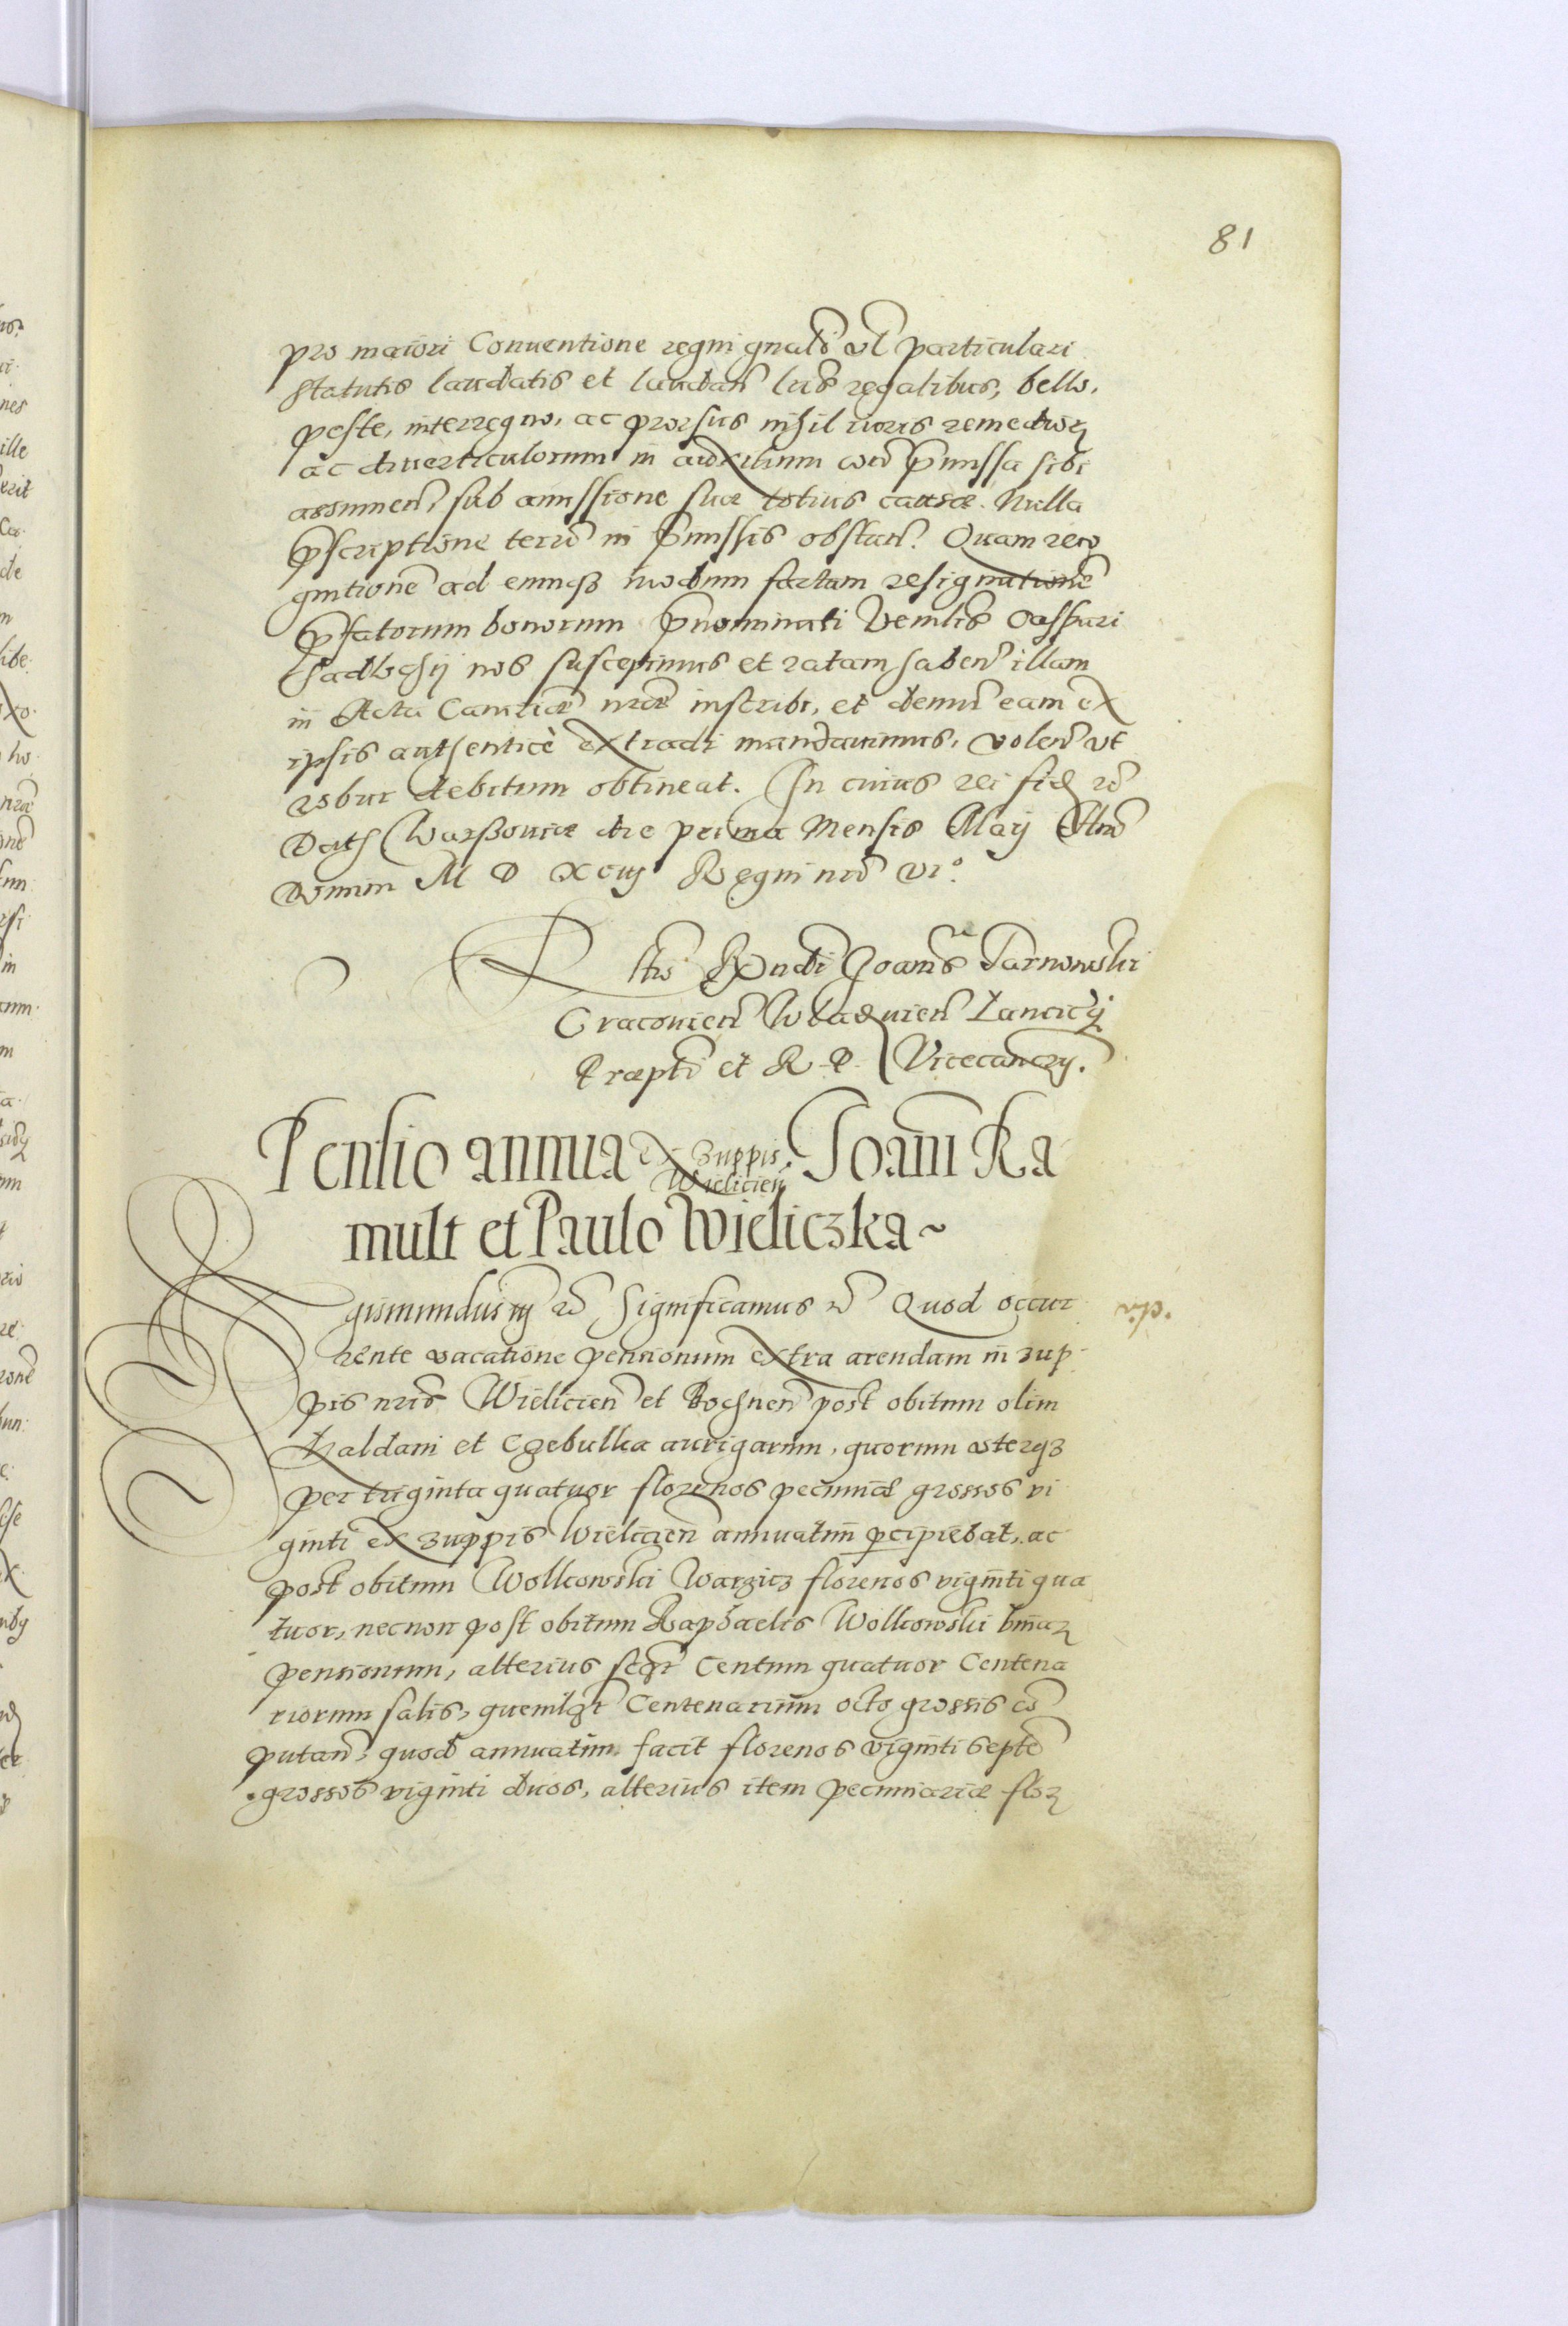 81
pro maiori Conuentione regni gnali vl particulari
statutis laudatis et laudan lris regalibus, bello,
peste, interregno, ac prorsus nihil iuris remedior
ac diuerticulorum in auxilium con pmissa sibi
assumen, sub amissione suæ totius causæ. Nulla
pscriptione terrē in pmissis obstan. Quam reco
gnitionē ad eumqz modum factam resignationē
pfatorum bonorum pnominati Venlis Casspari
Sadlochij nos suscepimus et ratam haben illam
in Acta Cancriæ nræ inscribi, et demū eam ex
ipsis authenticè extradi mandauimus, volen vt
robur debitum obtineat. In cuius rei fid rc
Dat Warssouiæ die prima Mensis Maij Ann
Domini M D XCiij Regni nri vi°.
Rltio Rxndi Joanis Tarnowski
Cracouien Wladislauien Lanciciē
Præpti et R. P. Vicecancrij.
Pensio annua ex Zuppis Wielicien Joanni Ka
mult et Paulo Wieliczka ~
Sigismundus iij rc Significamus rc Quod occur
rente vacatione pensionum extra arendam in zup
pis nris Wielicien et Bochnen post obitum olim
Haldani et Czebulka aurigarum, quorum vterqz
per triginta quatuor florenos pecuniæ grossos vi
ginti ex zuppis Wielicien annuatim pcipiebat, ac
post obitum Wolkowski Warzicz florenos viginti qua
tuor, necnon post obitum Raphaelis Wolkowski binar
pensionum, alterius sczt Centum quatuor Centena
riorum salis, quemlzt Centenarium octo grossis cō
putan, quod annuatim facit florenos viginti septē
grossos viginti duos, alterius item pecuniariæ flor